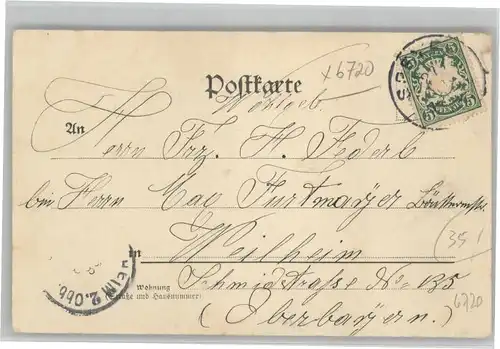 x 6720
Postkarte
Wohlgeb.
An Herrn Frz. H. Federl
bei Herrn Max Furtmayer
35
in Weilheim
Wohnung
Schmidstraße No 135
(Straße und Hausnummer)
(Oberbayern.)
6720
HEIM 2. Obb.
5 5
5 5